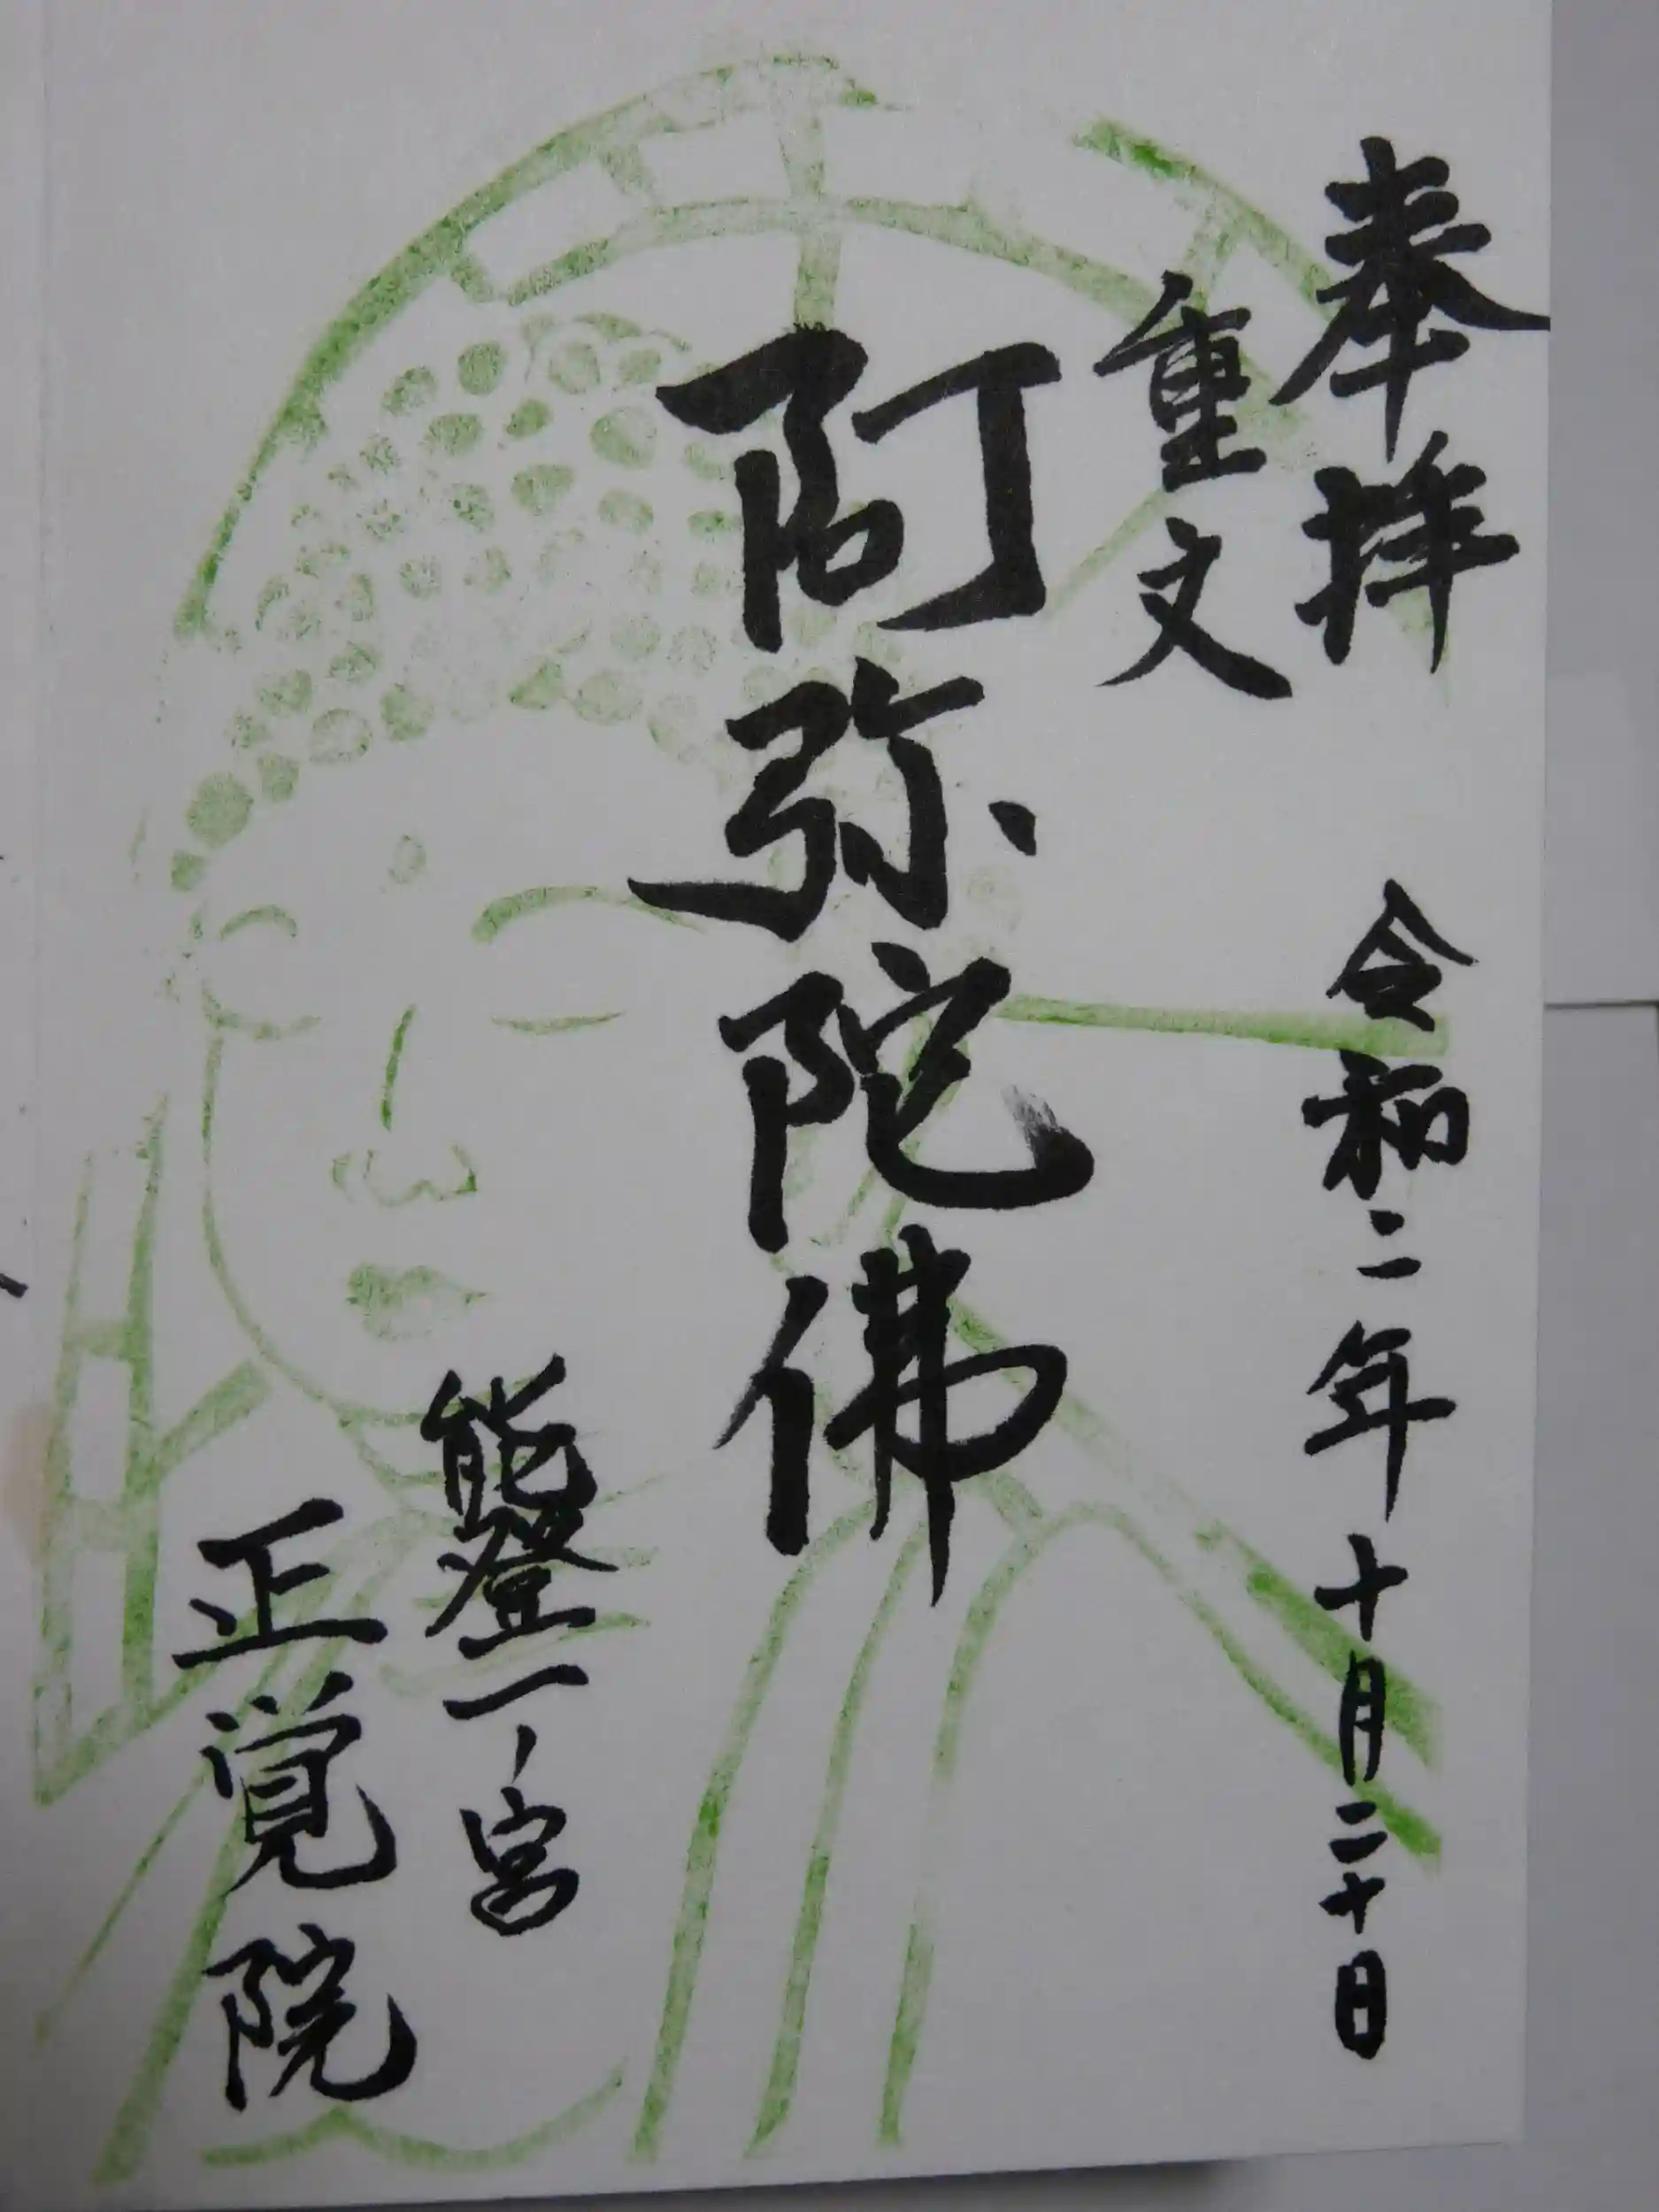 奉拝 令和二年十月二十日
重文
阿弥陀佛
能登一ノ宮
正覚院